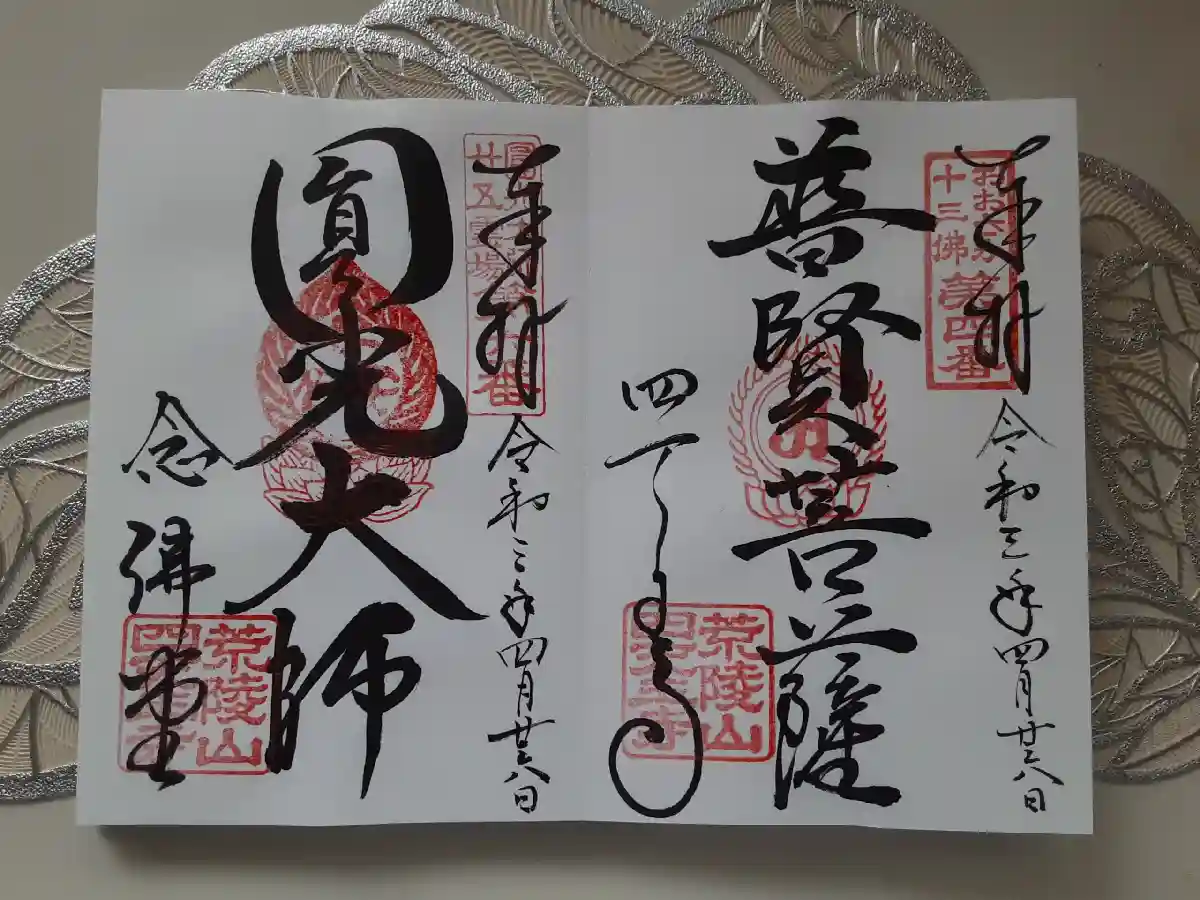 奉拝
令和三年四月廿八日
おおさか
十三佛
第四番
普賢菩薩
四天王寺
荒陵山
四天王寺
奉拝
令和三年四月廿八日
廿五霊場
圓光大師
念佛堂
荒陵山
四天王寺